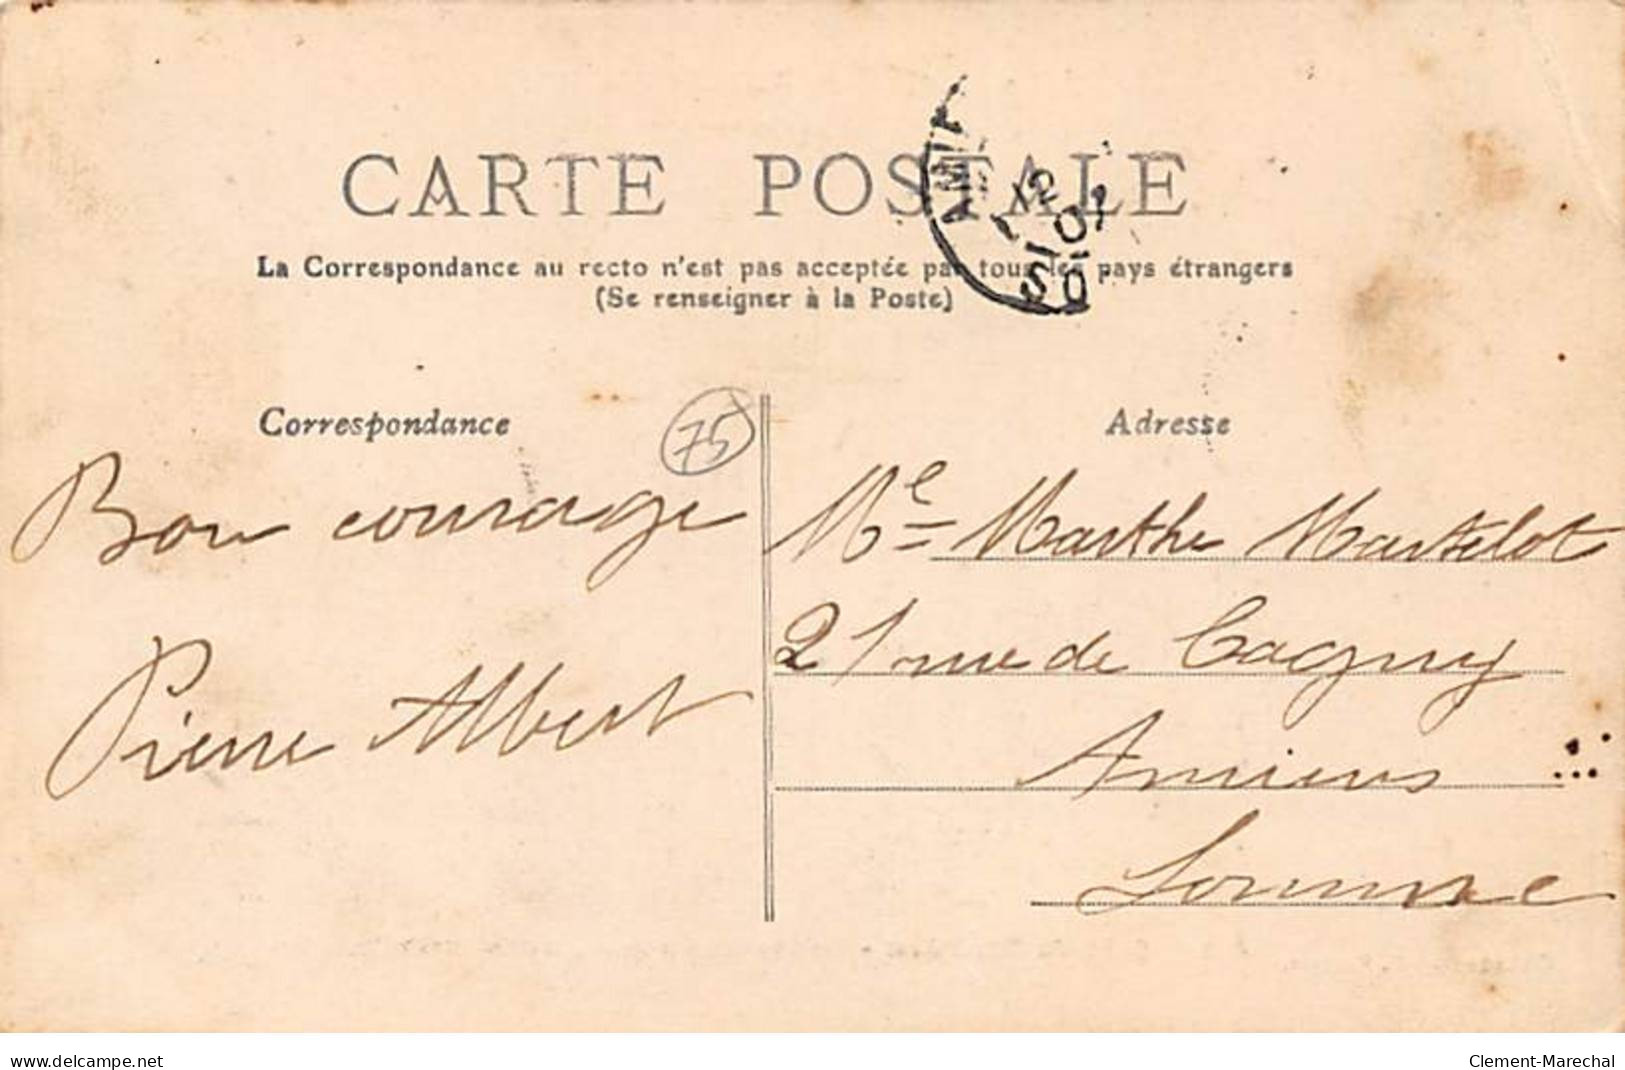 CARTE POSTALE
La Correspondance au recto n'est pas acceptée par tous les pays étrangers
(Se renseigner à la Poste)
12
07
Correspondance
75
Bon courage
Pierre Albert
Adresse
Mle Marthe Martelot
21 rue de Cagny
Amiens
Somme
www.delcampe.net
Clement-Marechal